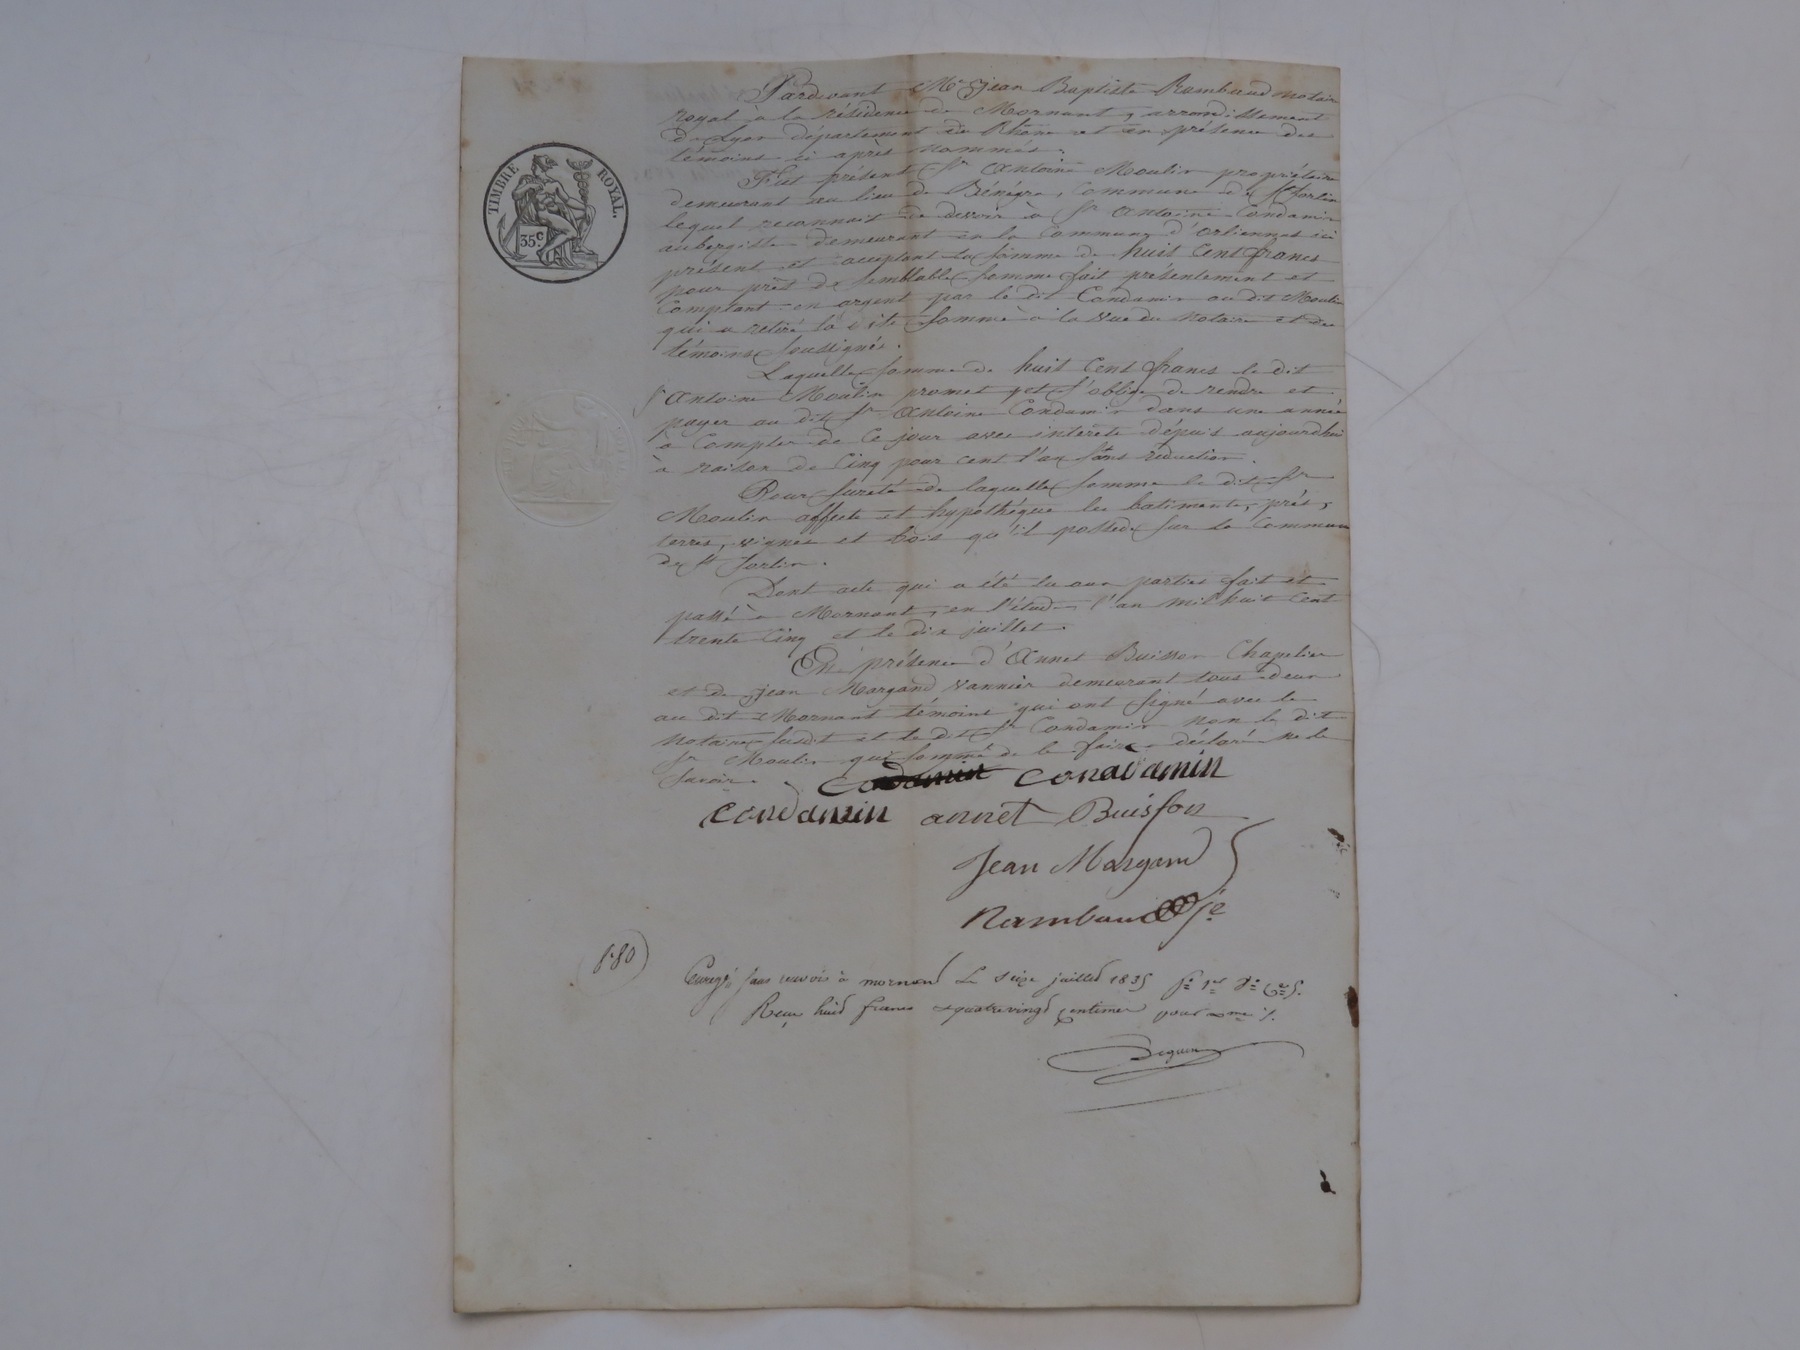 Pardevant Me Jean Baptiste Rambaud notaire
royal à la résidence de Mornant, arrondissement
de Lyon département du Rhône et en présence des
témoins ci après nommés.
TIMBRE ROYAL.
35c
Fut présent Sr Antoine Moulin propriétaire
demeurant au lieu de Bénégra, Commune de St Sorlin
lequel reconnait de devoir à Sr Antoine Condamin
aubergiste demeurant en la Commune d'Orliennas ici
présent et acceptant la somme de huit Cent francs
pour prêt de semblable somme fait présentement et
Comptant en argent par le dit Condamin au dit Moulin
qui a retiré la dite somme à la vue du notaire et des
témoins soussignés.
Laquelle somme de huit Cent francs le dit
Sr Antoine Moulin promet et s'oblige de rendre et
payer au dit Sr Antoine Condamin dans une année
à Compter de Ce jour avec intérêts dépuis aujourdhui
à raison de Cinq pour cent l'an sans réduction.
Pour sureté de laquelle somme le dit Sr
Moulin affecte et hypothèque les batiments, prés,
terres, vignes et bois qu'il possede sur la Commune
de St Sorlin.
Dont acte qui a été lu aux parties fait et
passé à Mornant, en l'étude, l'an mil huit Cent
trente Cinq et le dix juillet.
En présence d'Annet Buisson Chapelier
et de Jean Margand vannier demeurant tous deux
au dit Mornant témoins qui ont signé avec le
notaire susdit et le dit Sr Condamin non le dit
Sr Moulin qui sommé de le faire a déclaré ne le
savoir.
condamin
condamin annet Buisson
Jean Margand
Rambaud
8.80
Enregé sans renvoi à mornant Le seize juillet 1835
Reçu huit francs quatrevingt centimes pour
Seguin